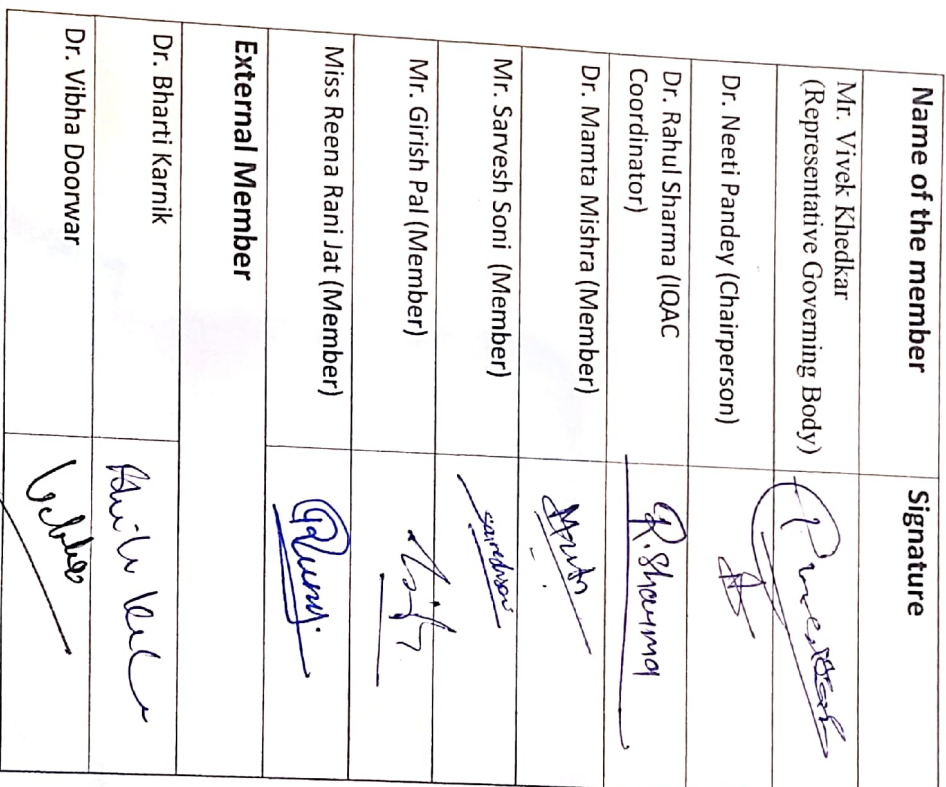 Name of the member
Signature
Mr. Vivek Khedkar
(Representative Governing Body)
Dr. Neeti Pandey (Chairperson)
Dr. Rahul Sharma (IQAC
Coordinator)
R.Sharma
Dr. Mamta Mishra (Member)
Mr. Sarvesh Soni (Member)
Mr. Girish Pal (Member)
Miss Reena Rani Jat (Member)
External Member
Dr. Bharti Karnik
Dr. Vibha Doorwar